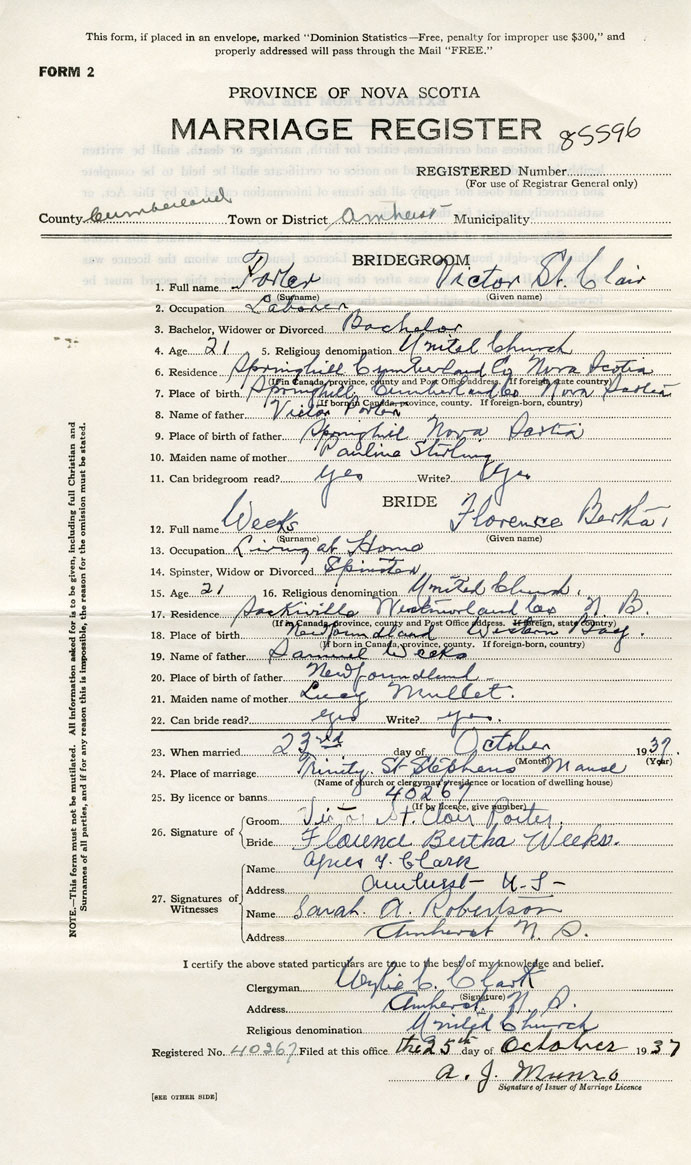 This form, if placed in an envelope, marked "Dominion Statistics—Free, penalty for improper use $300," and
properly addressed will pass through the Mail "FREE."
FORM 2
PROVINCE OF NOVA SCOTIA
MARRIAGE REGISTER 85596
REGISTERED Number
(For use of Registrar General only)
County Cumberland Town or District Amherst Municipality
BRIDEGROOM
1. Full name Porter Victor St. Clair
(Surname) (Given name)
2. Occupation Laborer
3. Bachelor, Widower or Divorced Bachelor
4. Age 21 5. Religious denomination United Church
6. Residence Springhill Cumberland Co Nova Scotia
(If in Canada, province, county and Post Office address. If foreign, state country)
7. Place of birth Springhill Cumberland Co Nova Scotia
(If born in Canada, province, county. If foreign-born, country)
8. Name of father Victor Porter
9. Place of birth of father Springhill Nova Scotia
10. Maiden name of mother Pauline Stirling
11. Can bridegroom read? yes Write? yes
BRIDE
12. Full name Weeks Florence Bertha
(Surname) (Given name)
13. Occupation Living at Home
14. Spinster, Widow or Divorced Spinster
15. Age 21 16. Religious denomination United Church.
17. Residence Sackville Westmorland Co N. B.
(If in Canada, province, county and Post Office address. If foreign, state country)
18. Place of birth Newfoundland Western Bay.
(If born in Canada, province, county. If foreign-born, country)
19. Name of father Samuel Weeks
20. Place of birth of father Newfoundland
21. Maiden name of mother Lucy Mullet.
22. Can bride read? yes Write? yes.
23. When married 23rd day of October 1937.
(Month) (Year)
24. Place of marriage Trinity. St Stephens Manse
(Name of church or clergyman's residence or location of dwelling house)
25. By licence or banns 40267
(If by licence, give number)
26. Signature of
Groom Victor St. Clair Porter.
Bride Florence Bertha Weeks.
27. Signatures of Witnesses
Name Agnes Y. Clark
Address Amherst N-S-
Name Sarah. A. Robertson
Address Amherst N. S.
I certify the above stated particulars are true to the best of my knowledge and belief.
Clergyman Wylie C. Clark
(Signature)
Address Amherst, N. S.
Religious denomination United Church
Registered No. 40267 Filed at this office the 25th day of October 1937
A. J. Munro
Signature of Issuer of Marriage Licence
[SEE OTHER SIDE]
NOTE.—This form must not be mutilated. All information asked for is to be given, including full Christian and
Surnames of all parties, and if for any reason this is impossible, the reason for the omission must be stated.